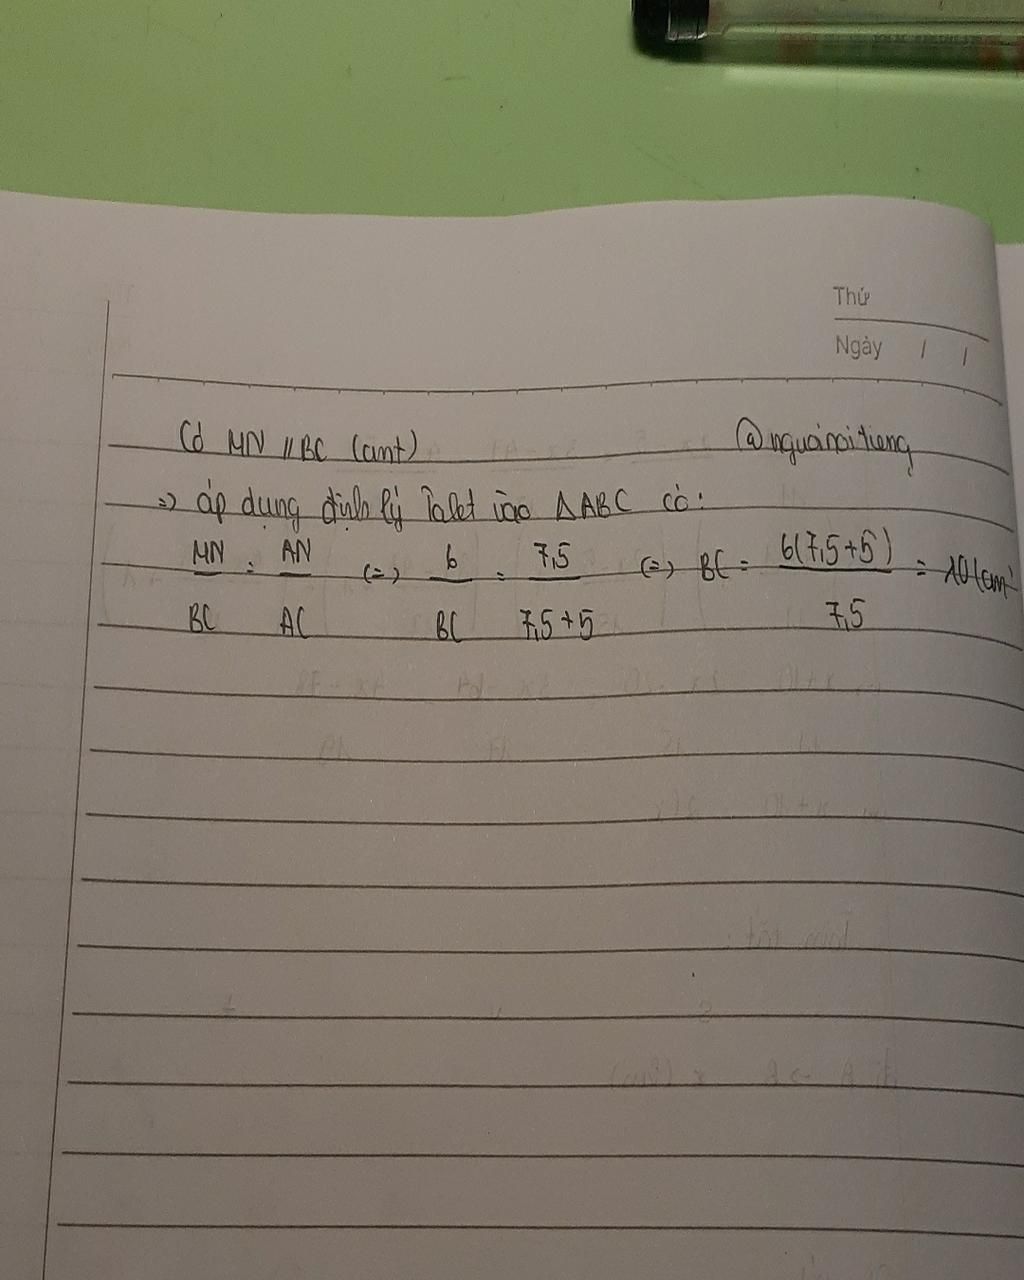 Thứ
Ngày / /
Có MN // BC (cmt) @nguoinoitieng
=> áp dụng định lý Talet vào ΔABC có:
MN/BC = AN/AC (=) 6/BC = 7,5/7,5+5 (=) BC = 6(7,5+5)/7,5 = 10 (cm)